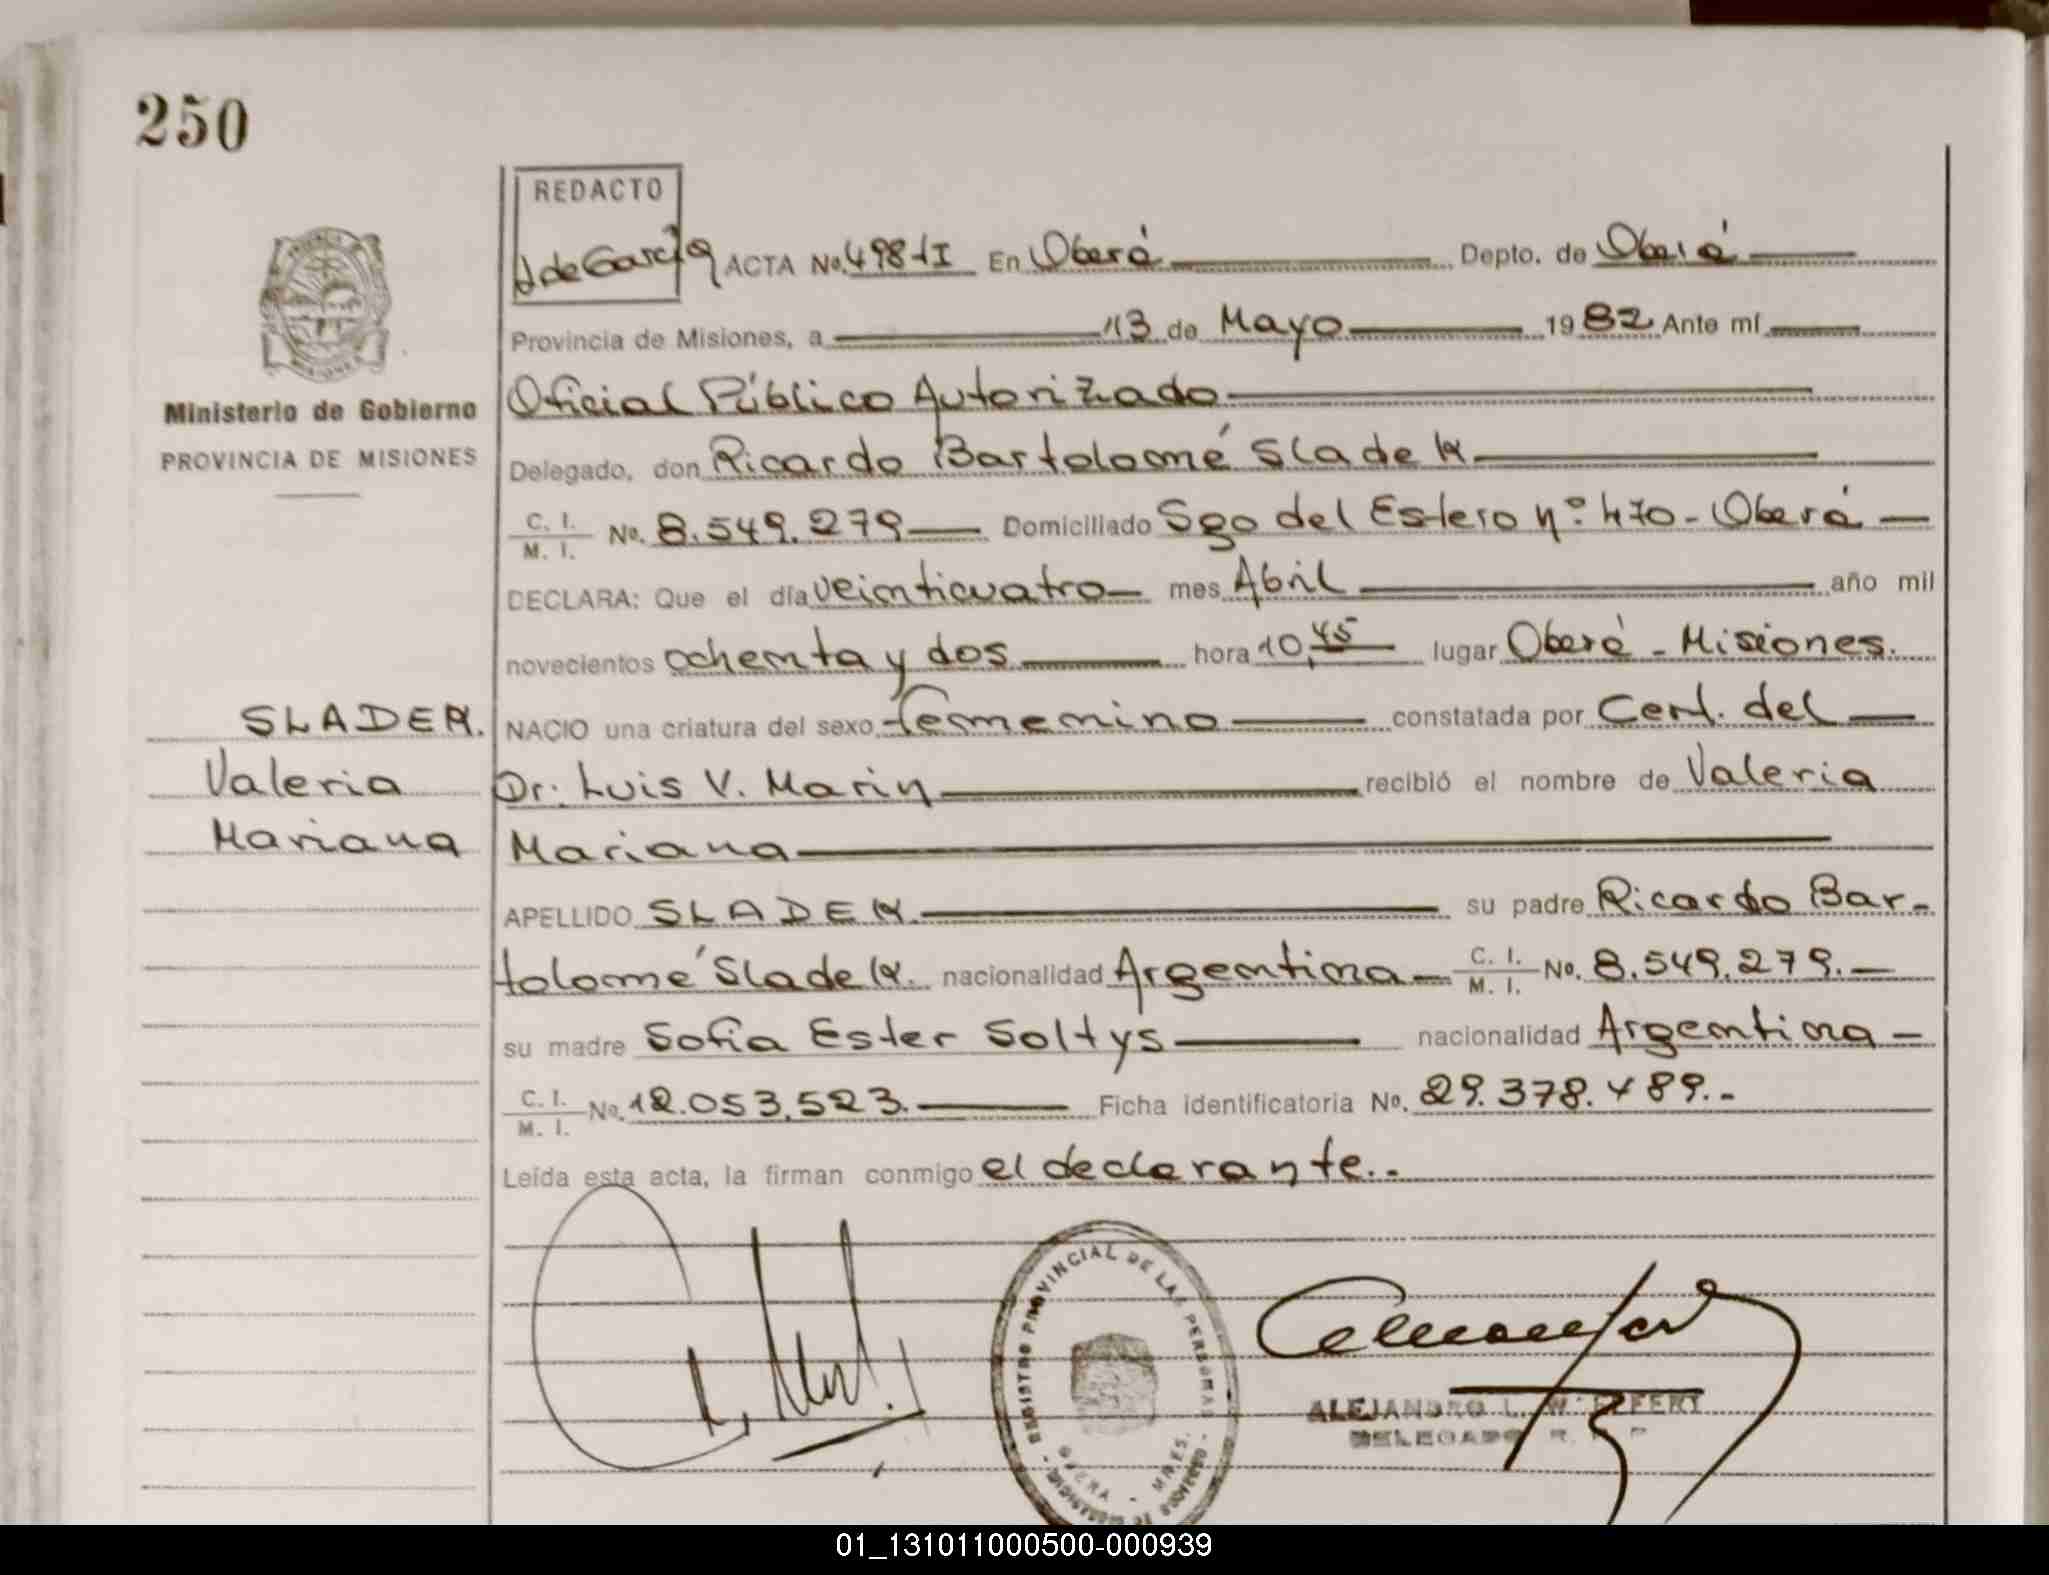 250
REDACTO
J de García ACTA No. 498-I En Oberá Depto. de Oberá
Provincia de Misiones, a 13 de Mayo 1982 Ante mí
Ministerio de Gobierno
PROVINCIA DE MISIONES
Oficial Público Autorizado
Delegado, don Ricardo Bartolomé Sladek
C. I. / M. I. No. 8.549.279 Domiciliado Sgo del Estero nº 470 - Oberá
DECLARA: Que el día veinticuatro mes Abril año mil
novecientos ochenta y dos hora 10,45 lugar Oberá - Misiones.
NACIO una criatura del sexo femenino constatada por Cert. del
Dr. Luis V. Marin recibió el nombre de Valeria
Mariana
SLADEK.
Valeria
Mariana
APELLIDO SLADEK. su padre Ricardo Bar-
tolomé Sladek. nacionalidad Argentina C. I. / M. I. No. 8.549.279.
su madre Sofia Ester Soltys nacionalidad Argentina
C. I. / M. I. No. 12.053.523. Ficha identificatoria No. 29.378.489.-
Leída esta acta, la firman conmigo el declarante..
REGISTRO PROVINCIAL DE LAS PERSONAS
OBERA - MNES.
ALEJANDRO L.
DELEGADO R. P.
01_131011000500-000939